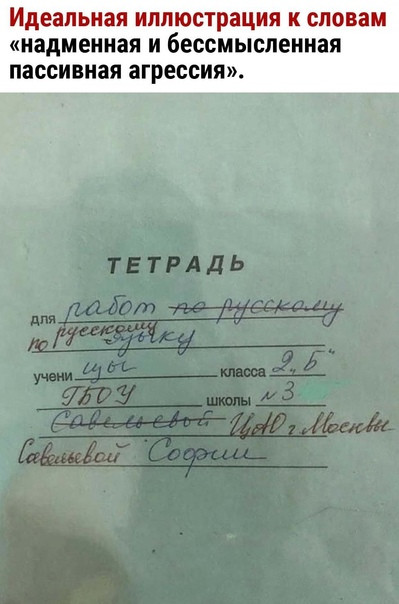 Идеальная иллюстрация к словам
«надменная и бессмысленная
пассивная агрессия».
ТЕТРАДЬ
для работ по русскому
по русскому языку
учени цы класса 2„Б“
ГБОУ школы №3
Савельевой ЦАО г Москвы
Савельевой Софии